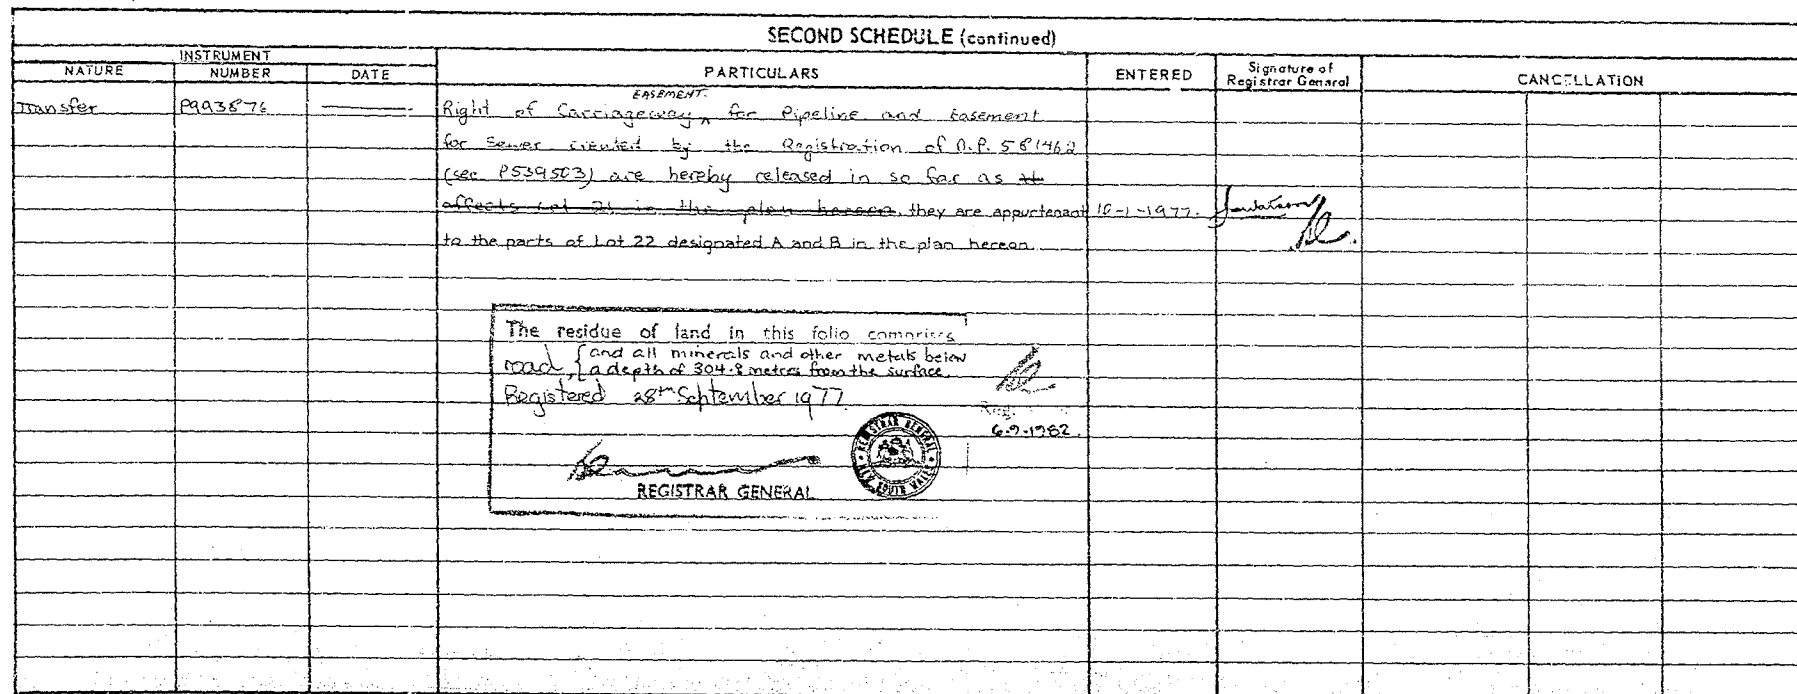 SECOND SCHEDULE (continued)
INSTRUMENT
NATURE NUMBER DATE PARTICULARS ENTERED Signature of Registrar General CANCELLATION
EASEMENT
Transfer P993876 Right of Carriageway, ^ for Pipeline and Easement
for Sewer created by the Registration of D.P. 581462
(see P539503) are hereby released in so far as it
affects Lot 21 in the plan hereon, they are appurtenant 10-1-1977.
to the parts of Lot 22 designated A and B in the plan hereon
The residue of land in this folio comprises
road, {and all minerals and other metals below
a depth of 304.8 metres from the surface.
Registered 28th September 1977
6-9-1982.
REGISTRAR GENERAL
REGISTRAR GENERAL
NEW SOUTH WALES